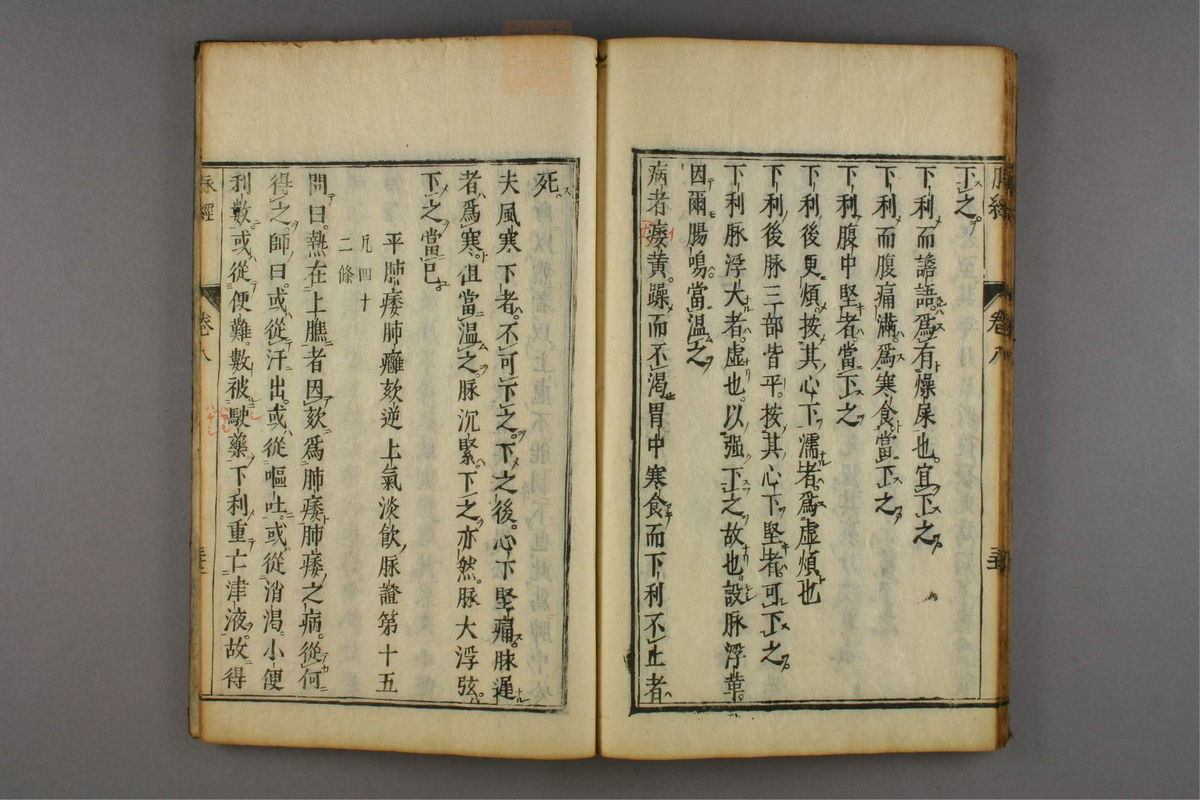 下之。
下利而譫語。爲有燥屎也。宜下之。
下利而腹痛滿。爲寒食。當下之。
下利腹中堅者。當下之
下利後更煩。按其心下濡者。爲虛煩也
下利後脉三部皆平。按其心下堅者。可下之。
下利脉浮大者。虛也。以强下之故也。設脉浮革。
因爾腸鳴。當溫之
病者痿黃。躁而不渴胃中寒食而下利不止者
死。
夫風寒下者。不可下之。下之後。心下堅痛。脉遲
者爲寒。但當溫之。脉沉緊。下之亦然。脉大浮弦。
下之。當已。
平肺痿肺癰欬逆上氣淡飲脉證第十五
凡四十
二條
問曰。熱在上膲者因欬爲肺痿肺痿之病。從何
得之。師曰。或從汗出。或從嘔吐。或從消渴。小便
利。數或從便難。數被駛藥下利重亡津液。故得
脉經
卷八